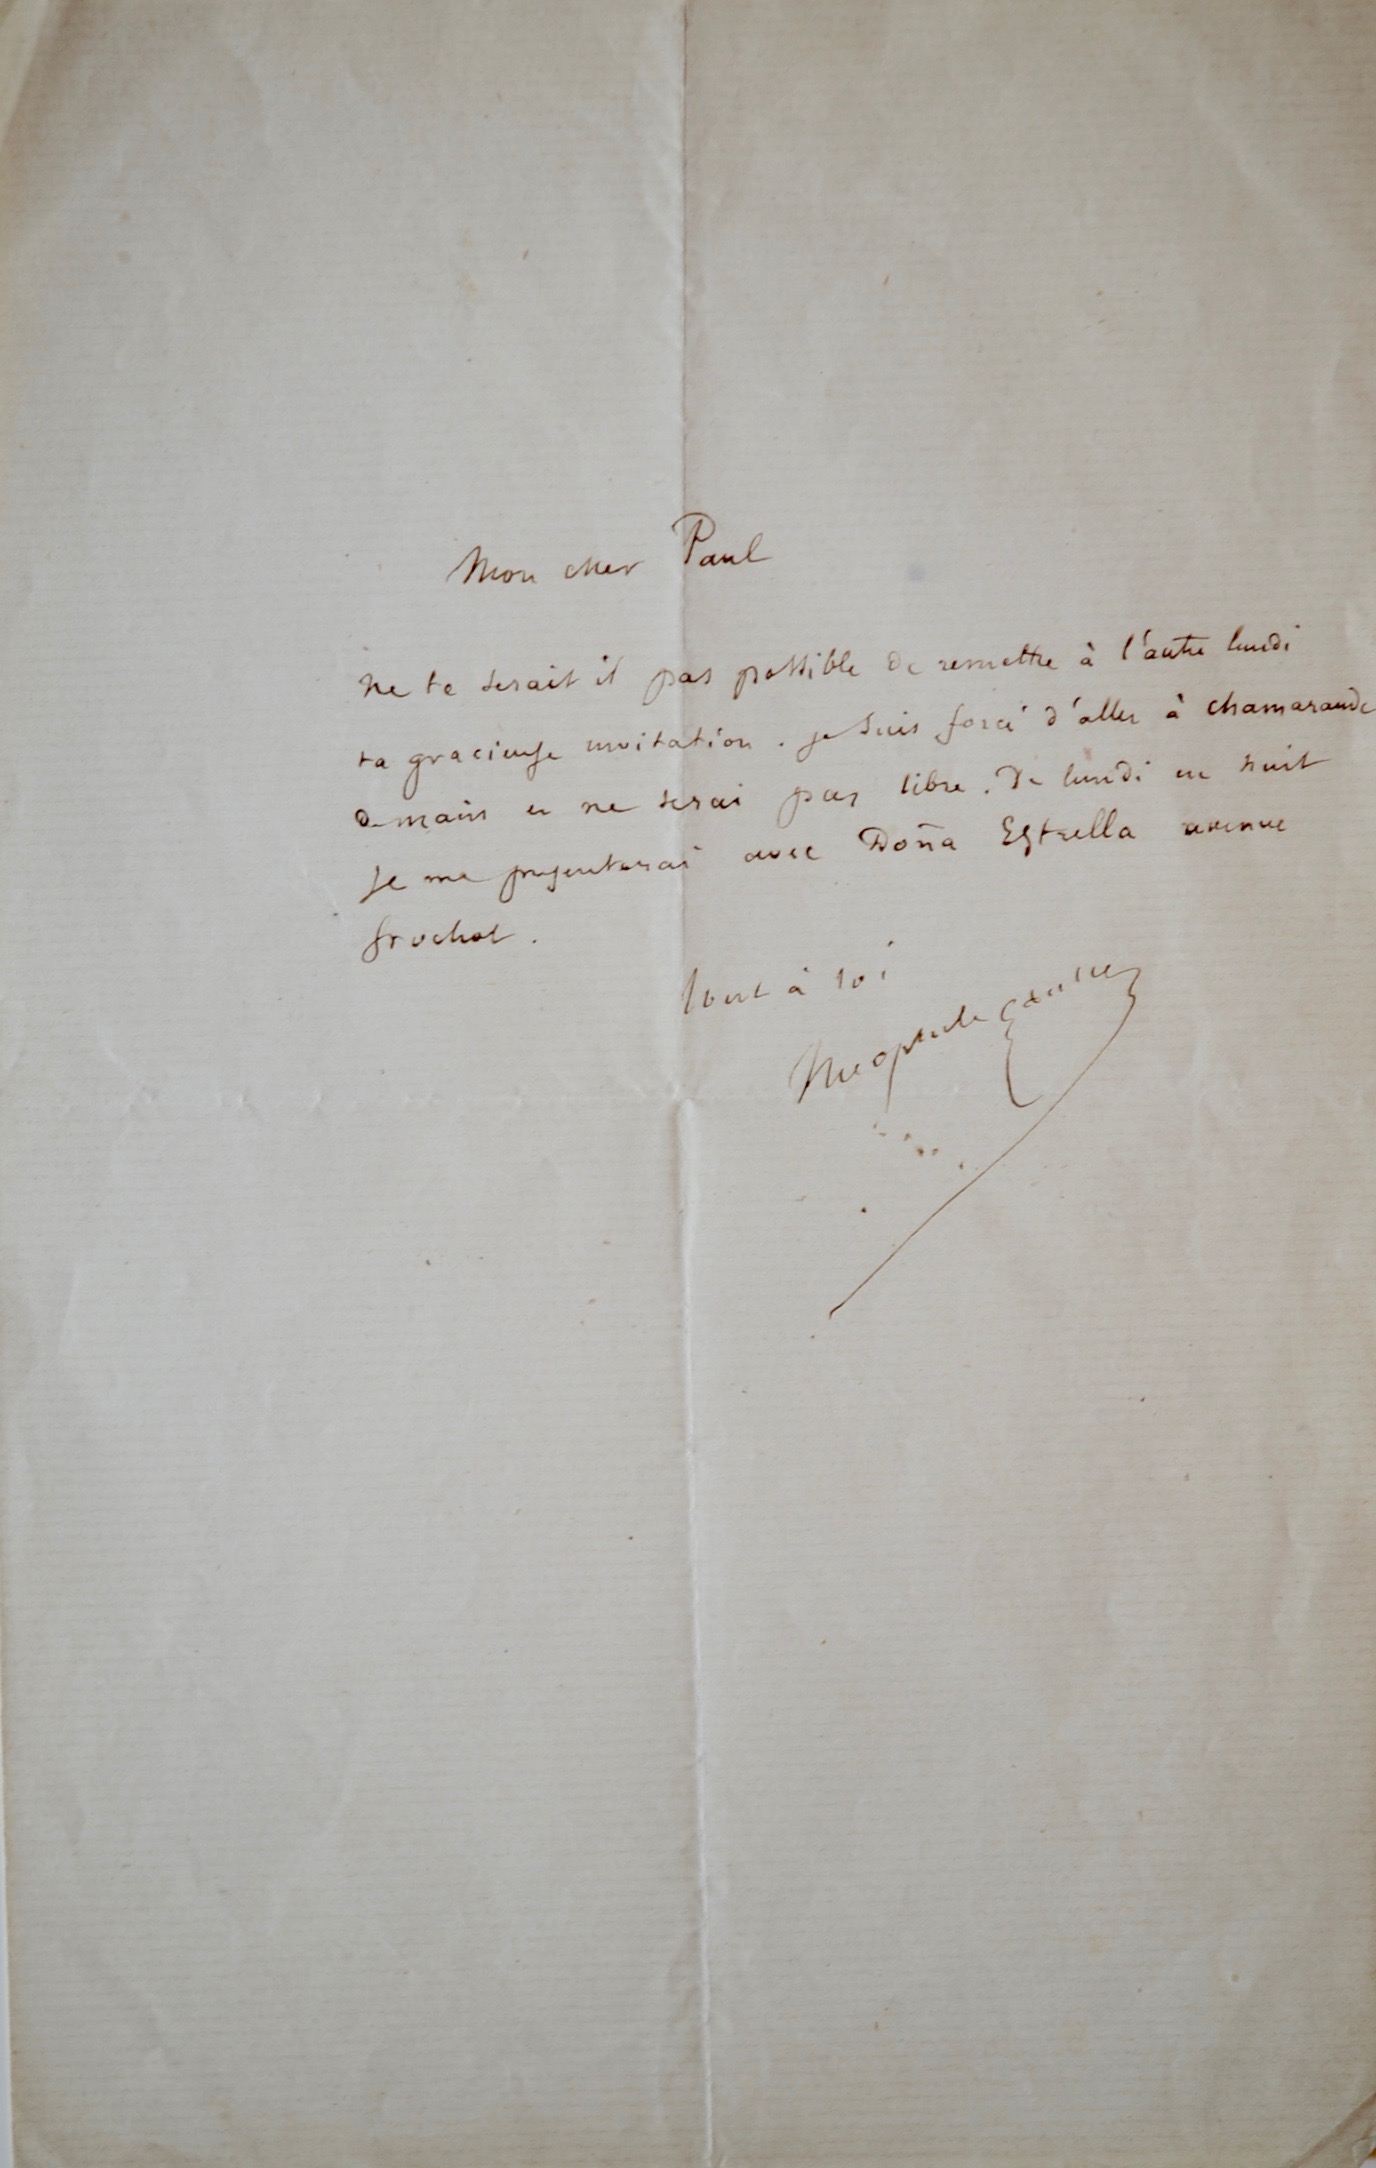 Mon cher Paul
ne te serait il pas possible de remettre à l'autre lundi
ta gracieuse invitation. je suis forcé d'aller à chamarande
demain et ne serai pas libre. De lundi en huit
je me presenterai avec Doña Estrella avenue
frochot.
tout à toi
Theophile Gautier